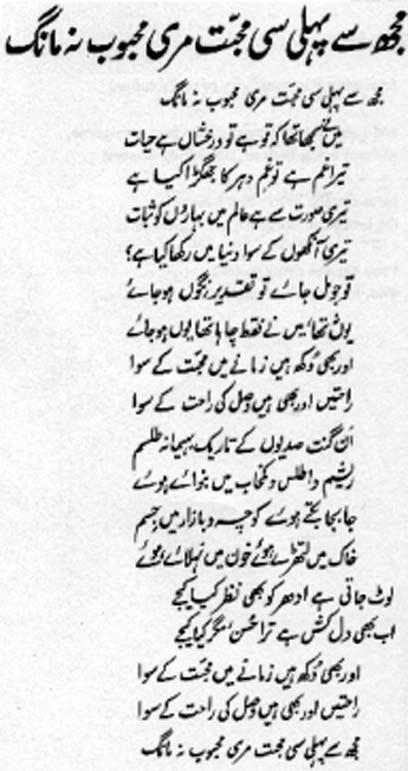 مجھ سے پہلی سی محبّت مری محبوب نہ مانگ
مجھ سے پہلی سی محبت مری محبوب نہ مانگ
میں نے سمجھا تھا کہ تو ہے تو درخشاں ہے حیات
تیرا غم ہے تو غمِ دہر کا جھگڑا کیا ہے
تیری صورت سے ہے عالم میں بہاروں کو ثبات
تیری آنکھوں کے سوا دنیا میں رکھا کیا ہے؟
تو جو مل جائے تو تقدیر نگوں ہو جائے
یوں نہ تھا، میں نے فقط چاہا تھا یوں ہو جائے
اور بھی دُکھ ہیں زمانے میں محبت کے سوا
راحتیں اور بھی ہیں وصل کی راحت کے سوا
اَن گنت صدیوں کے تاریک بہیمانہ طلسم
ریشم و اطلس و کمخاب میں بنوائے ہوئے
جا بجا بکتے ہوئے کوچہ و بازار میں جسم
خاک میں لتھڑے ہوئے خون میں نہلائے ہوئے
لوٹ جاتی ہے ادھر کو بھی نظر کیا کیجے
اب بھی دل کش ہے ترا حُسن مگر کیا کیجے
اور بھی دُکھ ہیں زمانے میں محبت کے سوا
راحتیں اور بھی ہیں وصل کی راحت کے سوا
مجھ سے پہلی سی محبت مری محبوب نہ مانگ